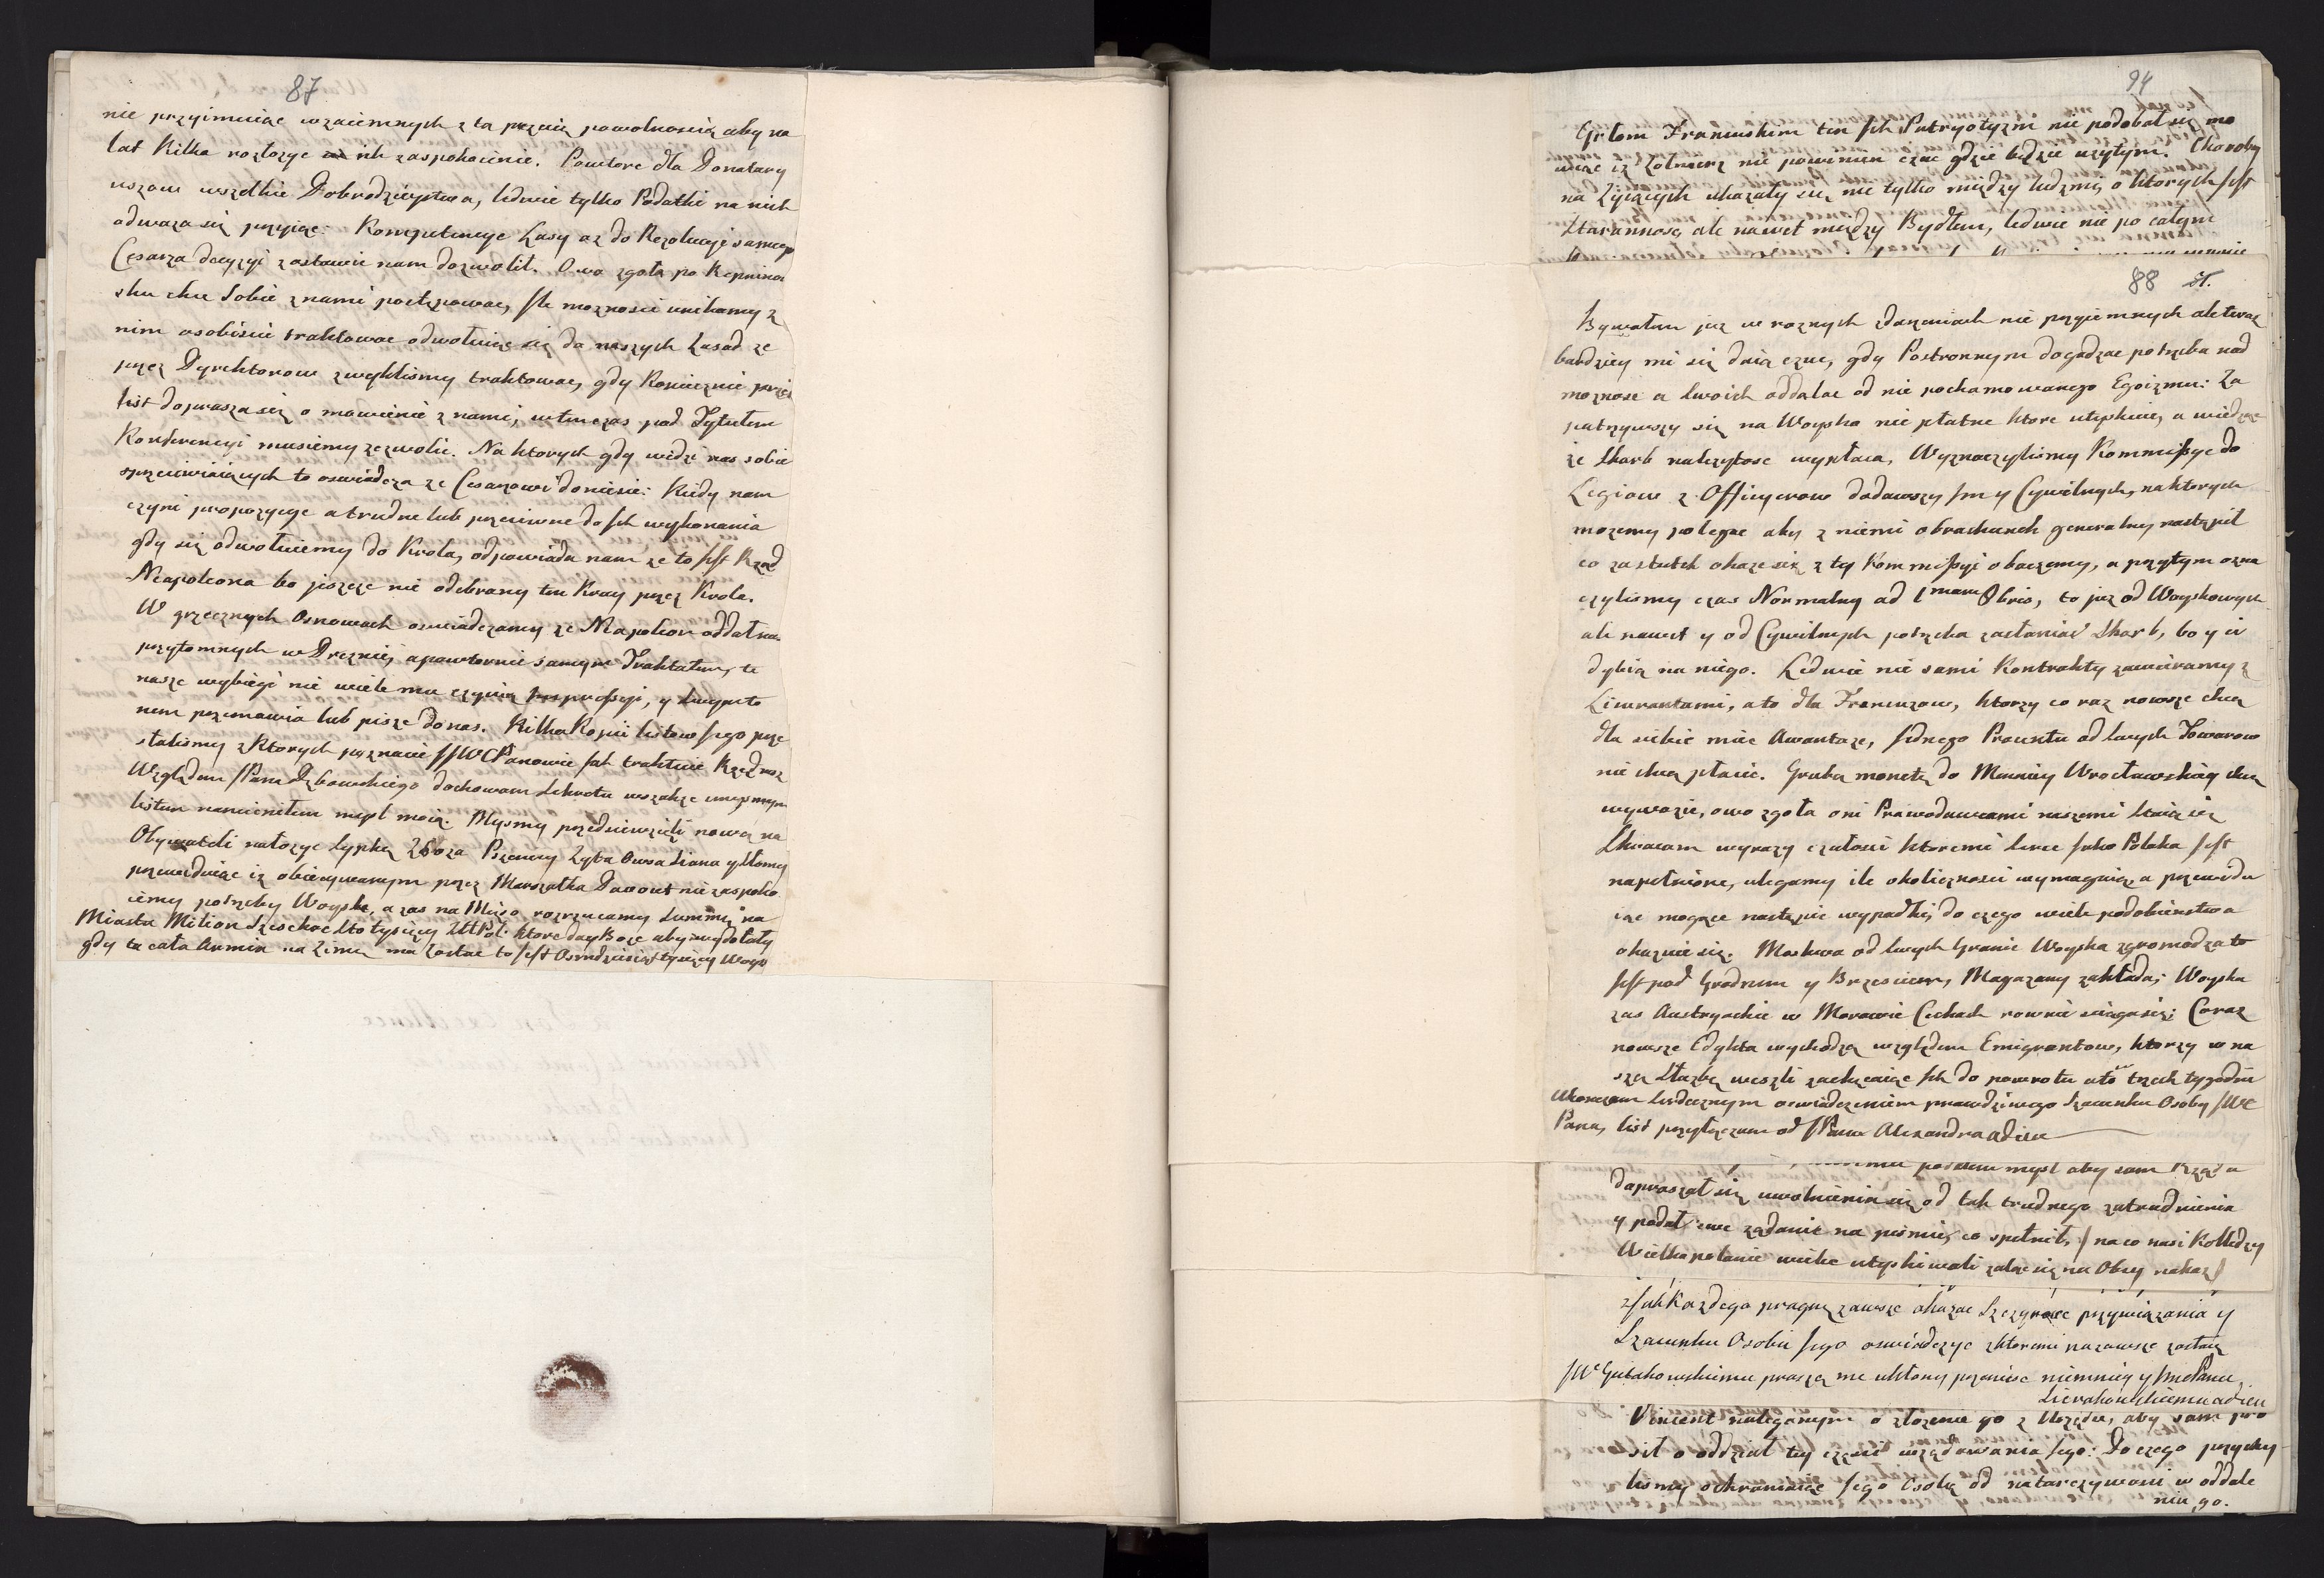 87
nie przyimuiąc wzaiemnych z tą przcią powolnoscią aby na
lat kilka rozłozyc ich zaspokoienie. Powtore dla Donatary
uszow wszelkie Dobrodzieystwa, ledwie tylko Podatki na nich
odwaza się przyiąc: Kompetencye Lasy az do Rezolucyi samego
Cesarza decyzyi zostawic nam dozwolił. Owo zgoła po Repnino
sku chce sobie z nami postępowac, Ile moznosci unikamy z
nim osobiscie traktowac odwołuiąc się do naszych Zasad ze
przez Dyrektorow zwyklismy traktowac, gdy koniecznie przez
list doprasza się o mowienie z nami, wtenczas pod Tytułem
Konferencyi musiemy zezwolic. Na ktorych gdy widzi nas sobie
sprzeciwiaiących to oswiadcza ze Cesarzowi doniesie: Kiedy nam
czyni propozycye a trudne lub przeciwne do Ich wykonania
gdy się odwołuiemy do Krola, odpowiada nam ze to Jest Rząd
Napoleona bo jeszcze nie odebrany ten Kray przez Krola.
W grzecznych Osnowach oswiadczamy ze Napoleon oddał nas
przytomnych w Dreznie, a powtornie samym Traktatem, te
nasze wybiegi nie wiele mu czynią , y swym to
nem przemawia lub pisze do nas. Kilka Kopii listow Jego prze
słalismy z ktorych poznacie JJWCPanowie Jak traktuie Rząd nasz
Względem JPana Dąbrowskiego dochowam Sekretu wszakze
listem namieniłem mysl moię. Mysmy przedsięwzieli nową na
Obywateli nałozyc Sypkę Zboza Pszenicy Zyta Owsa Siana y Słomy
przewiduiąc iz obiecywanym przez Marszałka Davout nie zaspoko
iemy potrzeby Woyska, a zas na Mięso rozrzucamy Summę na
Miasta Milion Szescset Sto tysięcy Złt Pol: ktore day Boze aby wydołały
gdy ta cała Armia na Zimę ma zostac to Jest Osmdziesiąt tysięcy Woys
94
Grłom Francuskim ten Ich Patryotyzm nie podobał się mo
wiąc iz Zołnierz nie powinien czuc gdzie będzie uzytym. Choroby
na Zyiących ukazały się nie tylko między ludzmi, o ktorych Jest
Starannosc, ale nawet między Bydłem, ledwie nie po całym
88
Bywałem juz w roznych zdarzeniach nie przyiemnych ale teraz
bardziey mi się daią czuc, gdy Postronnym dogadzac potrzeba nad
moznosc a swoich oddalac od nie pochamowanego Egoizmu: Za
patrzywszy się na Woysko nie płatne ktore utyskuie, a wiedząc
ze Skarb nalezytosc wypłaca, Wyznaczylismy Kommissye do
Legiow z Officyerow dodawszy Im y Cywilnych, na ktorych
mozemy polegac aby z niemi obrachunek generalny nastąpił
co za skutek okaze się z tey Kommissyi obaczemy, a przytym ozna
czylismy czas Normalny ad 1mam 8bris, to juz od Woyskowych
ale nawet y od Cywilnych potrzeba zasłaniac Skarb, bo y ci
dybią na niego. Ledwie nie sami Kontrakty zawieramy z
Liwerantami, a to dla Francuzow, ktorzy co raz nowsze chcą
dla siebie miec Awantaze, Jednego Procentu od swych Towarow
nie chcą płacic. Grubą monetę do Mennicy Wrocławskiey chcą
wywozic, owo zgoła oni Prawodawcami naszemi Staią się
Skracam wyrazy czułosci ktoremi Serce Jako Polaka Jest
napełnione, ulegamy ile okolicznosci wymagaią a przewidu
iąc mogące nastąpic wypadki, do czego wiele podobienstwa
okazuie się. Moskwa od swych Granic Woyska zgromadza to
Jest pod Grodnem y Brzesciem, Magazyny zakłada, Woyska
zas Austryackie w Morawie Czechach rownie sciąga się: Coraz
nowsze Edykta wychodzą względem Emigrantow, ktorzy w na
szą Słuzbę weszli zachęcaiąc Ich do powrotu a to w trzech tygodni
Ukonczam Serdecznym oswiadczeniem prawdziwego Szacunku Osoby JWC
Pana, list przyłączam od JPana Alexandra adieu
podałem mysl aby sam Rządu
dopraszał się uwolnienia się od tak trudnego zatrudnienia
y podał swe ządanie na pismie, co spełnił, / na co nasi Kolledzy
Wielkopolanie wielce utyskiwali zaląc się na Obcy nakaz/
z Jak Kazdego pragnę zawsze okazac Szczyrosc przywiązania y
Szacunku Osobie Jego oswiadczyc z ktoremi na zawsze zostaię
JWc Gutakowskiemu proszę me ukłony przeniesc niemniey y Jmc Panu
Sierakowskiemu adieu
Vincent naleganym o złozenie go z Urzędu, aby sam pro
sił o oddział tey częsci urzędowania Jego: Do czego przychy
lismy ochraniaiąc Jego Osobę od natarczywosci w oddale
niu go.